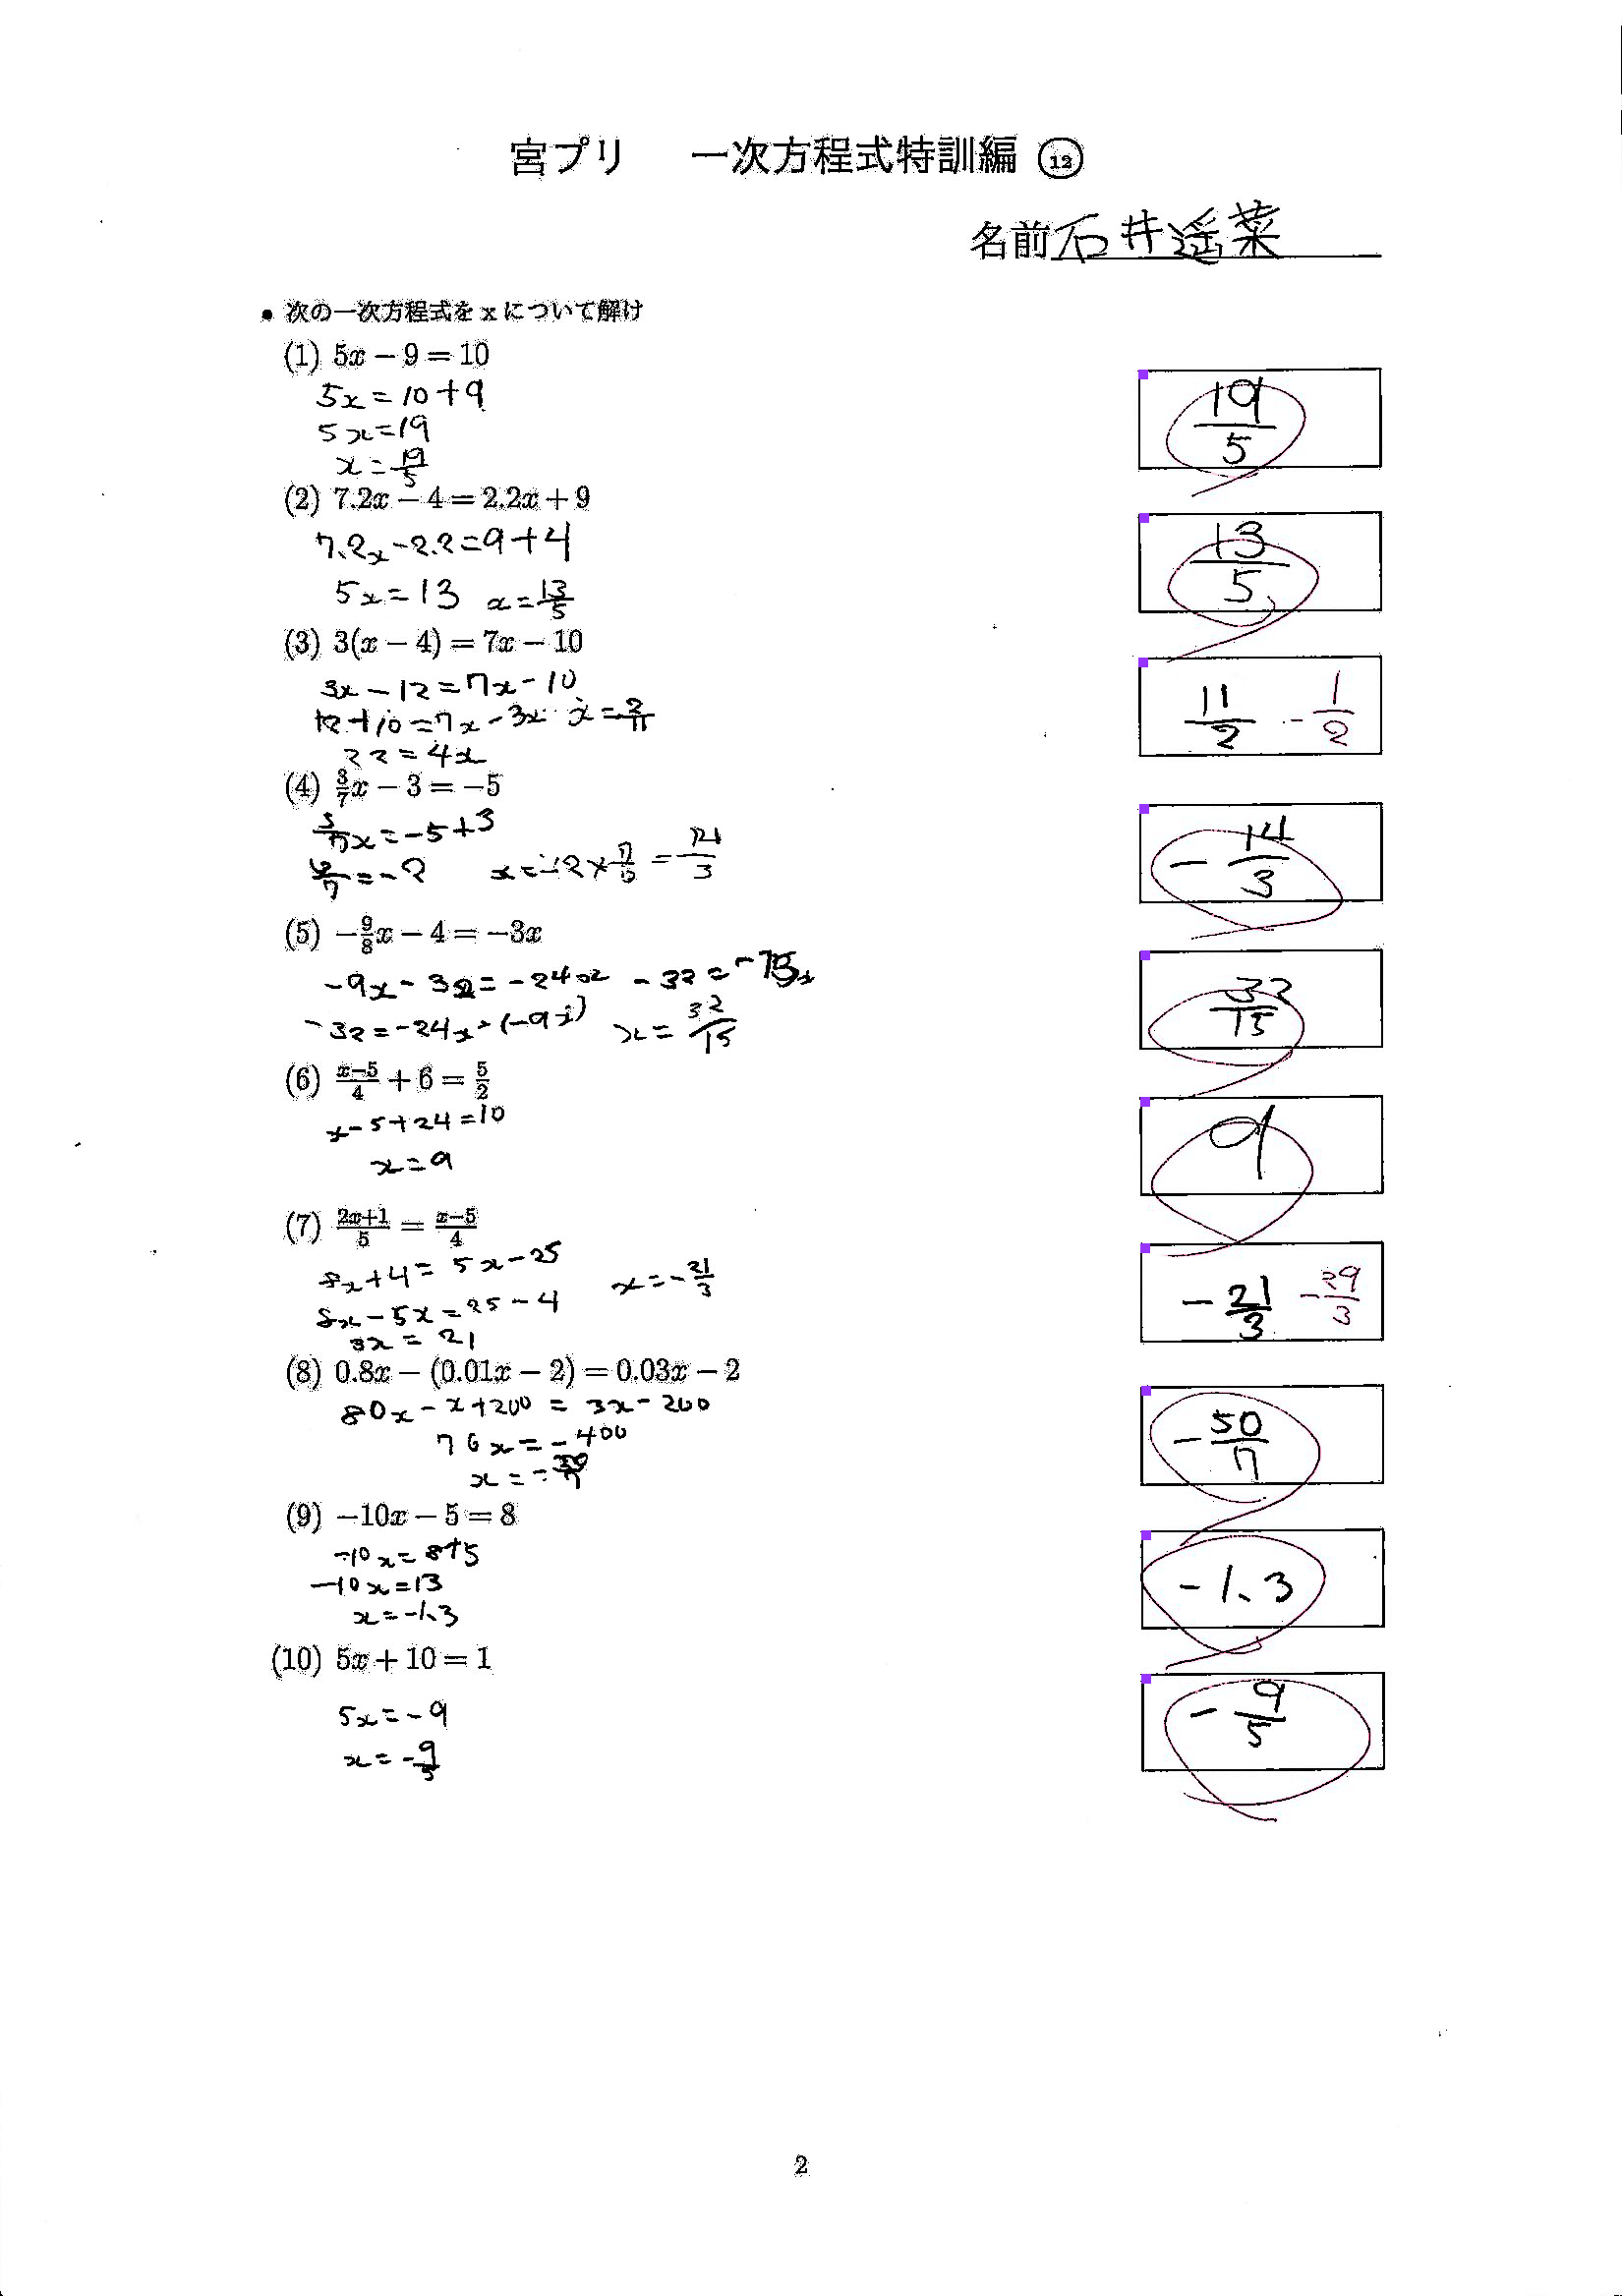 宮プリ 一次方程式特訓編 ⑫
名前 石井遥菜
• 次の一次方程式をxについて解け
(1) 5x − 9 = 10
5x = 10 + 9
5x = 19
x = 19/5
19/5
(2) 7.2x − 4 = 2.2x + 9
7.2x − 2.2 = 9 + 4
5x = 13 x = 13/5
13/5
(3) 3(x − 4) = 7x − 10
3x − 12 = 7x − 10
12 + 10 = 7x − 3x x = 2/11
22 = 4x
11/2 − 1/2
(4) 3/7x − 3 = −5
3/7x = −5 + 3
/7 = −2 x = −2 × 7/ = 14/3
− 14/3
(5) −9/8x − 4 = −3x
−9x − 32 = −24x − 32 = −15x
−32 = −24x − (−9x) x = 32/15
32/15
(6) x−5/4 + 6 = 5/2
x − 5 + 24 = 10
x = 9
9
(7) 2x+1/5 = x−5/4
8x + 4 = 5x − 25 x = − 21/3
8x − 5x = 25 − 4
3x = 21
− 21/3 − 29/3
(8) 0.8x − (0.01x − 2) = 0.03x − 2
80x − x + 200 = 3x − 200
76x = −400
x = −
− 50/7
(9) −10x − 5 = 8
−10x = 8+5
−10x = 13
x = −1.3
−1.3
(10) 5x + 10 = 1
5x = −9
x = − 9/5
− 9/5
2